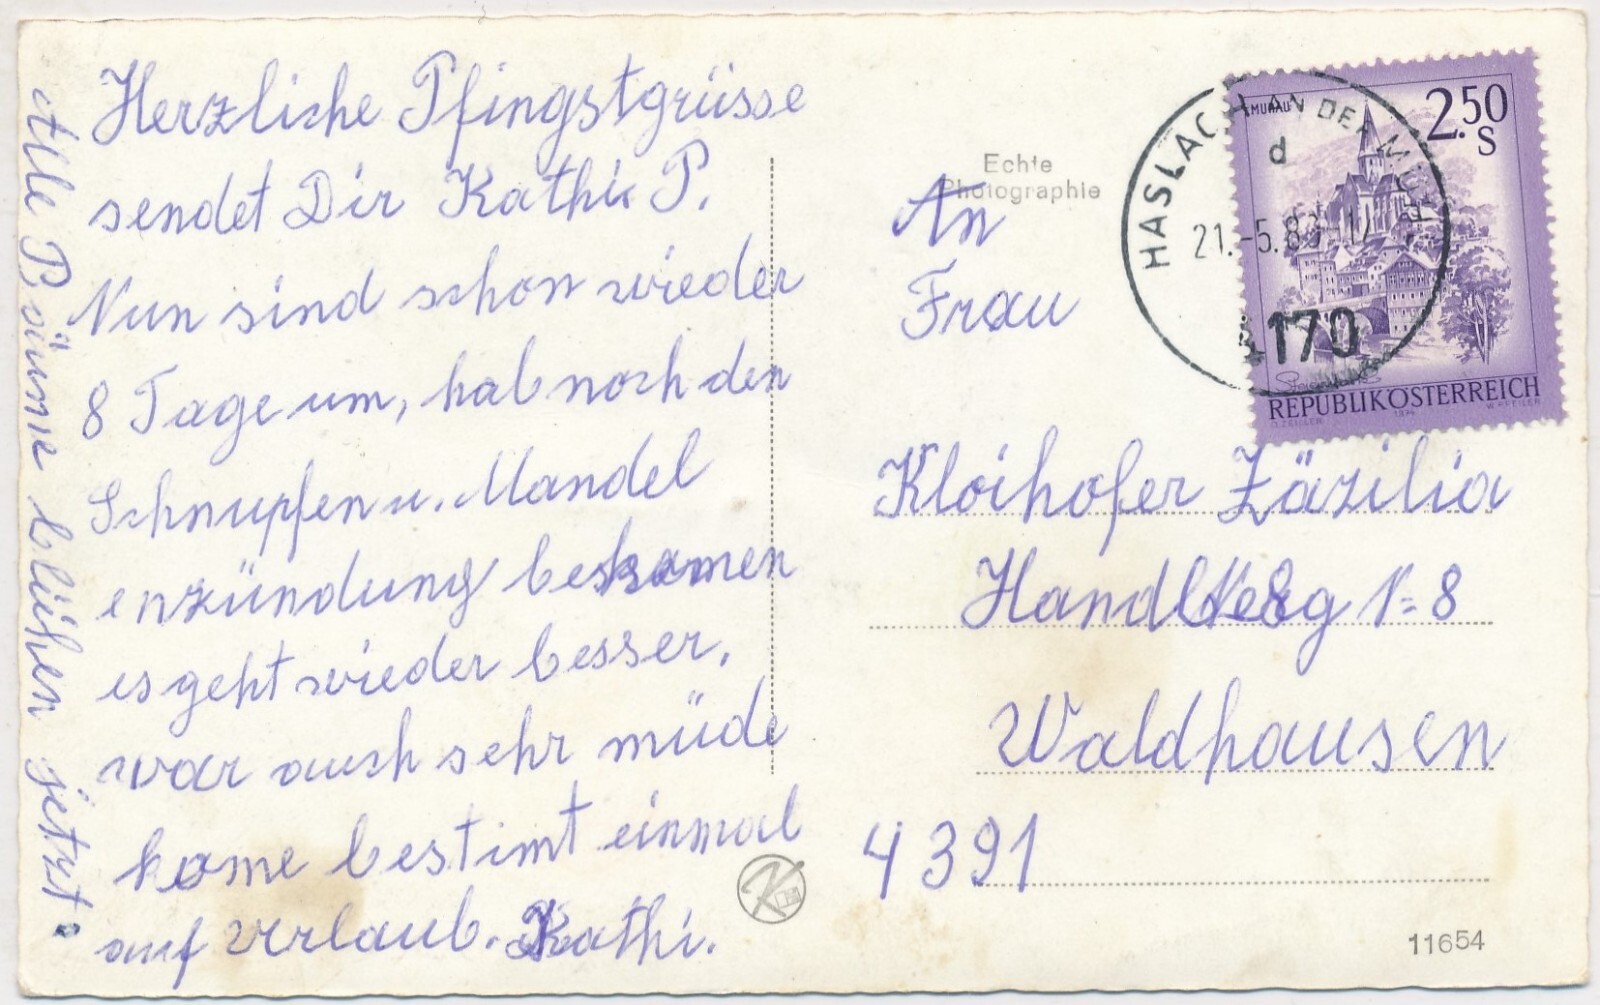 Herzliche Pfingstgrüsse
sendet Dir Kathi P.
Nun sind schon wieder
8 Tage um, hab noch den
Schnupfen u. Mandel
enzündung bekamen
es geht wieder besser,
war auch sehr müde
kome bestimt einmal
auf Urlaub. Kathi.
Alle Bäume blühen jetzt.
Echte
Photographie
An
Frau
Kloihofer Zäzilia
Handlberg N= 8
Waldhausen
4391
11654
HASLACH AN DER MÜHL
d
21.-5.80
4170
MURAU
2.50
S
REPUBLIK ÖSTERREICH